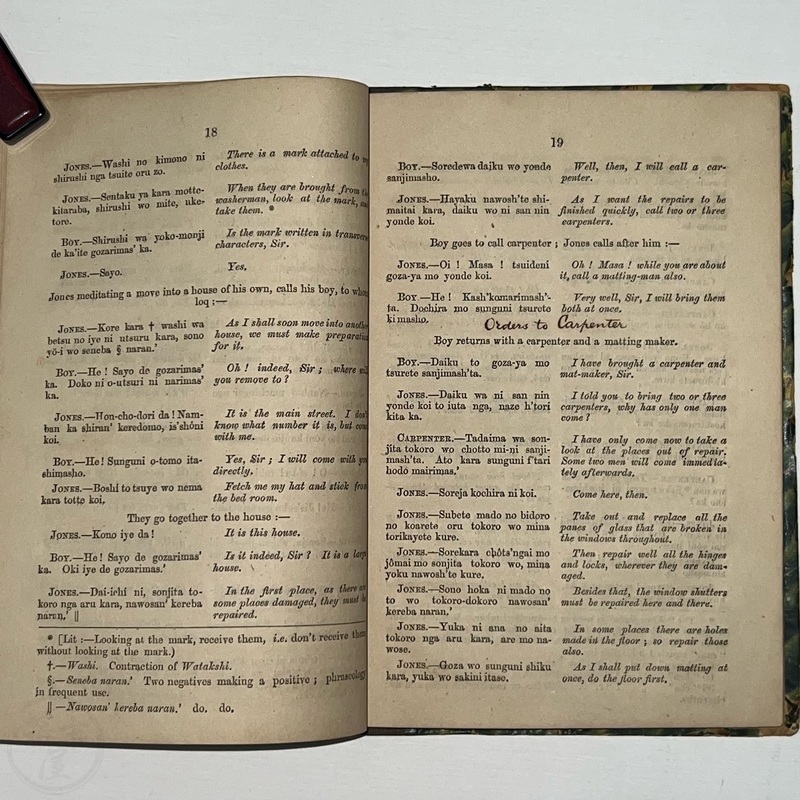 18
JONES.—Washi no kimono ni
shirushi nga tsuite oru zo.
There is a mark attached to
clothes.
JONES.—Sentaku ya kara motte-
kitaraba, shirushi wo mite, uke-
tore.
When they are brought from
washerman, look at the mark,
take them. *
BOY.—Shirushi wa yoko-monji
de ka'ite gozarimas' ka.
Is the mark written in transverse
characters, Sir.
JONES.—Sayo.
Yes.
Jones meditating a move into a house of his own, calls his boy, to whom
loq :—
JONES.—Kore kara † washi wa
betsu no iye ni utsuru kara, sono
yō-i wo seneba § naran.'
As I shall soon move into another
house, we must make preparation
for it.
BOY.—He! Sayo de gozarimas'
ka. Doko ni o-utsuri ni narimas'
ka.
Oh! indeed, Sir; where will
you remove to?
JONES.—Hon-cho-dori da! Nam-
ban ka shiran' keredomo, is'shóni
koi.
It is the main street. I don't
know what number it is, but come
with me.
BOY.—He! Sunguni o-tomo ita-
shimasho.
Yes, Sir; I will come with you
directly.
JONES.—Boshi to tsuye wo nema
kara totte koi.
Fetch me my hat and stick from
the bed room.
They go together to the house :—
JONES.—Kono iye da!
It is this house.
BOY.—He! Sayo de gozarimas'
ka. Oki iye de gozarimas.'
Is it indeed, Sir? It is a large
house.
JONES.—Dai-ichi ni, sonjita to-
koro nga aru kara, nawosan' kereba
naran.' ||
In the first place, as there are
some places damaged, they must be
repaired.
* [Lit :—Looking at the mark, receive them, i.e. don't receive them
without looking at the mark.)
†.—Washi. Contraction of Watakshi.
§.—Seneba naran.' Two negatives making a positive; phraseology
in frequent use.
||.—Nawosan' kereba naran.' do. do.
19
BOY.—Soredewa daiku wo yonde
sanjimasho.
Well, then, I will call a car-
penter.
JONES.—Hayaku nawosh'te shi-
maitai kara, daiku wo ni san nin
yonde koi.
As I want the repairs to be
finished quickly, call two or three
carpenters.
Boy goes to call carpenter; Jones calls after him :—
JONES.—Oi! Masa! tsuideni
goza-ya mo yonde koi.
Oh! Masa! while you are about
it, call a matting-man also.
BOY.—He! Kash'komarimash'-
ta. Dochira mo sunguni tsurete
kimasho.
Very well, Sir, I will bring them
both at once.
Orders to Carpenter
Boy returns with a carpenter and a matting maker.
BOY.—Daiku to goza-ya mo
tsurete sanjimash'ta.
I have brought a carpenter and
mat-maker, Sir.
JONES.—Daiku wa ni san nin
yonde koi to iuta nga, naze h'tori
kita ka.
I told you to bring two or three
carpenters, why has only one man
come?
CARPENTER.—Tadaima wa son-
jita tokoro wo chotto mi-ni sanji-
mash'ta. Ato kara sunguni f'tari
hodo mairimas.'
I have only come now to take a
look at the places out of repair.
Some two men will come immedia-
tely afterwards.
JONES.—Soreja kochira ni koi.
Come here, then.
JONES.—Subete mado no bidoro
no koarete oru tokoro wo mina
torikayete kure.
Take out and replace all the
panes of glass that are broken in
the windows throughout.
JONES.—Sorekara chôts'ngai mo
jômai mo sonjita tokoro wo, mina
yoku nawosh'te kure.
Then repair well all the hinges
and locks, wherever they are dam-
aged.
JONES.—Sono hoka ni mado no
to wo tokoro-dokoro nawosan'
kereba naran.'
Besides that, the window shutters
must be repaired here and there.
JONES.—Yuka ni ana no aita
tokoro nga aru kara, are mo na-
wose.
In some places there are holes
made in the floor; so repair those
also.
JONES.—Goza wo sunguni shiku
kara, yuka wo sakini itase.
As I shall put down matting at
once, do the floor first.